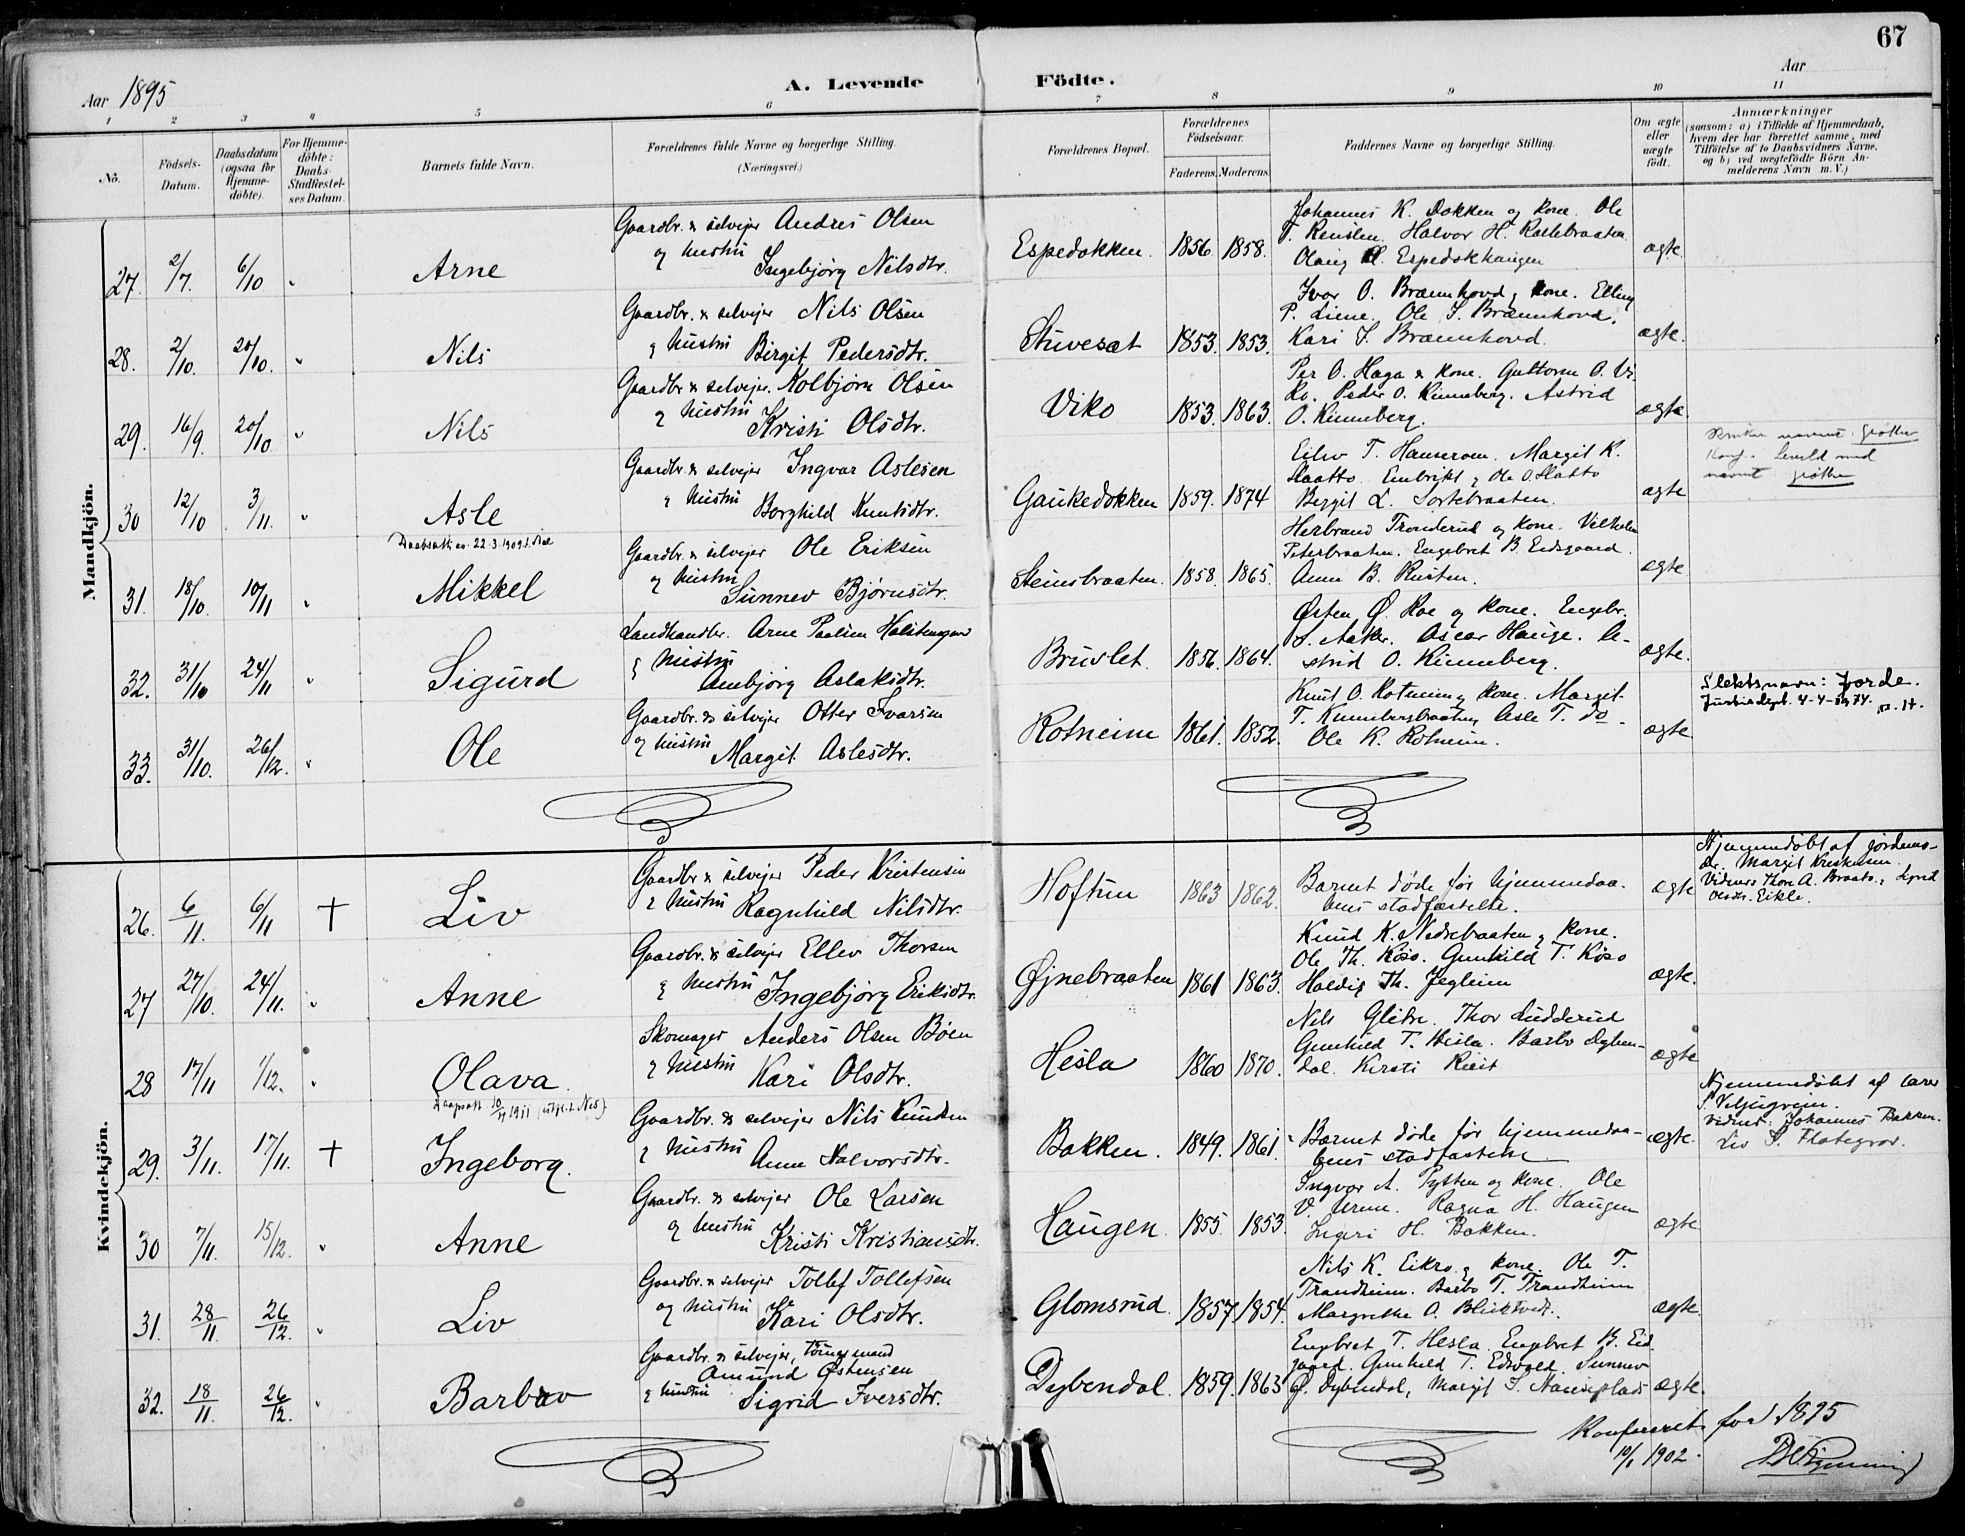 67
Aar 1895
A. Levende Födte.
Aar
1 2 3 4 5 6 7 8 9 10 11
Nò.
Födsels-Datum.
Daabsdatum (ogsaa för Hjemmedöbte).
For Hjemmedöbte: Daabs-Stadfæstelses Datum.
Barnets fulde Navn.
Forældrenes fulde Navne og borgerlige Stilling. (Næringsvei.)
Forældrenes Bopæl.
Forældrenes Födselsaar.
Faderens. Moderens.
Faddernes Navne og borgerlige Stilling.
Om ægte eller uægte födt.
Anmærkninger
(saasom: a) i Tilfælde af Hjemmedaab, hvem der har forrettet samme, med Tilföielse af to Daabsvidners Navne, og b) ved uægtefödte Börn Anmelderens Navn m. V.)
Mandkjön.
Gaardbr. & selvejer Andres Olsen
Johannes K. Dokken og kone. Ole
27. 2/7. 6/10 " Arne og hustru Ingebjørg Nilsdtr. Espedokken. 1856 1858. ægte.
Halvor H.
Olaug Espedokhaugen
Gaardbr. & selvejer Nils Olsen
Ivar O. Bræmhovd & kone. Elling
P. Liene. Ole I. Bræmhovd.
28. 2/10. 20/10. " Nils & hustru Birgit Pedersdtr. Stuvesæt 1853. 1853. Kari I. Bræmhovd. ægte.
Gaardbr & selvejer. Kolbjørn Olsen
Per O. Haga & kone. Guttorm O. Vi-
ko. Peder O. Rinneberg. Astrid
29. 16/9. 20/10 " Nils & hustru Kristi Olsdtr. Viko 1853. 1863. O. Rinneberg. ægte
Gaardbr. & selvejer Ingvar Aslesen
Eiliv T. Hanserom. Margit K.
Slaatto. Embrikt & Ole O. Slatto
30 12/10 3/11. " Asle & hustru Borghild Knutsdtr. Gaukedokken 1859. 1874 Birgit L. Sortebraaten. ægte
navnet
Daabsatt. 22.3.1909
Gaardbr. & selvejer Ole Eriksen
Herbrand Tronderud og kone. Vilhelm
Petersbraaten. Engebret B. Eidsgaard.
31. 18/10. 10/11 " Mikkel og hustru Sunnev Bjørnsdtr. Steinsbraaten. 1858. 1865. Anne B. Rusten. ægte
Landhandler. Arne Paulsen Halstensgaard
Østen Ø. Roe og kone. Engebr.
S. Aaker. Oscar Hauge. A-
32. 31/10 24/11 " Sigurd & hustru Ambjørg Aslaksdtr. Bruslet. 1856. 1864. strid O. Rinneberg. ægte.
Slektsnavn: Jorde.
Justisdept. 4-4-1974.
Gaardbr. & selvejer Otter Ivarsen
Knut O. Rotneim & kone. Margit
T. Rinnebergbraaten, Asle T. do.
33. 31/10. 26/12. " Ole og hustru Margit Aslesdtr. Rotneim 1861. 1852. Ole K. Rotneim. ægte.
Kvindekjön.
Gaardbr & selvejer Peder Kristensen
26. 6/11. 6/11 † Liv & hustru Ragnhild Nilsdtr. Hoftun 1863 1862. Barnet døde før hjemmedaa-
bens stadfæstelse. ægte
Hjemmedøbt af jordemo-
der Margit Kristensen.
Vidner: Thore A. Braata,
Eikle.
Gaardbr. & selvejer Ellev Thorsen
Knud K. Nedrebraaten & kone.
Ole Th. Røso. Gunhild T. Røso
27 27/10. 24/11. " Anne & hustru Ingebjørg Eriksdtr. Øjnebraaten 1861 1863. Haldis Th. Jegleim ægte.
Skomager Anders Olsen Bøen
Nils Glitre. Thor Ludderud
Gunhild T. Hesla. Barbo Dyben-
28 17/11 1/12. " Olava. & hustru Kari Olsdtr. Hesla 1860 1870. dal. Kirsti Ruist ægte
Daapsatt. 1911
Gaardbr. & selvejer Nils Knudsen
29. 3/11. 17/11. † Ingeborg. & hustru Anne Halvorsdtr. Bakken. 1849. 1861. Barnet døde før hjemmedaa-
bens stadfæstelse ægte.
Hjemmedøbt af lærer
S. Veljugreim.
Vidner: Johannes Bakken.
Liv S. Flategrav.
Gaardbr. & selvejer Ole Larsen
Ingvar A. Pytten og kone. Ole
V. Urun. Ragna H. Haugen
30 7/11. 15/12. " Anne og hustru Kristi Kristiansdtr. Haugen 1855. 1853. Ingeri H. Bakken. ægte
Gaardbr. & selvejer Tollef Tollefsen
Nils K. Eikro & kone. Ole T.
Trandheim. Barbo T. Trandheim
31. 28/11. 26/12. " Liv og hustru Kari Olsdtr. Glomsrud. 1857 1854. Margrethe A. ægte.
Gaardbr. & selvejer,
Amund Østensen
Engebret T. Hesla. Engebret B. Eid-
gaard. Gunhild T. Eidsvold. Sunnev
32. 18/11. 26/12. " Barbro & hustru Sigrid Iversdtr. Dybendal. 1859. 1863 Ø. Dybendal, Margit S. ægte.
Konfereret for 1895
10/1 1902.